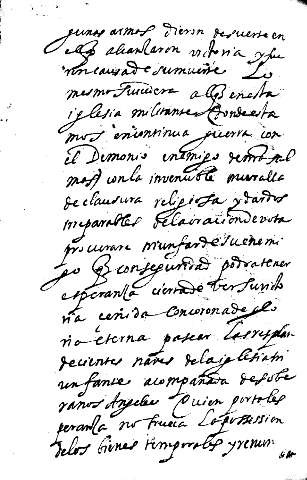 gunas armos dieron de suerte en
ellos alcanzaron victoria y fue
ron causa de su muerte Lo
mesmo sucediera a los en esta
iglesia militante donde esta
mos en continua guerra con
el Demonio enemigo de nras al
mas con la invencible muralla
de clausura religiosa y dardos
irreparables de la oracion devota
procurare triunfar de su enemi
go con seguridad podra tener
esperanza cierta de ver su victo
ria ceñida con corona de glo
ria eterna pasear las resplan
decientes naves de la iglesia tri
unfante acompañada de sobe
ranos Angeles Quien por tal es
peranza no trueca la possession
de los bienes temporales y renun